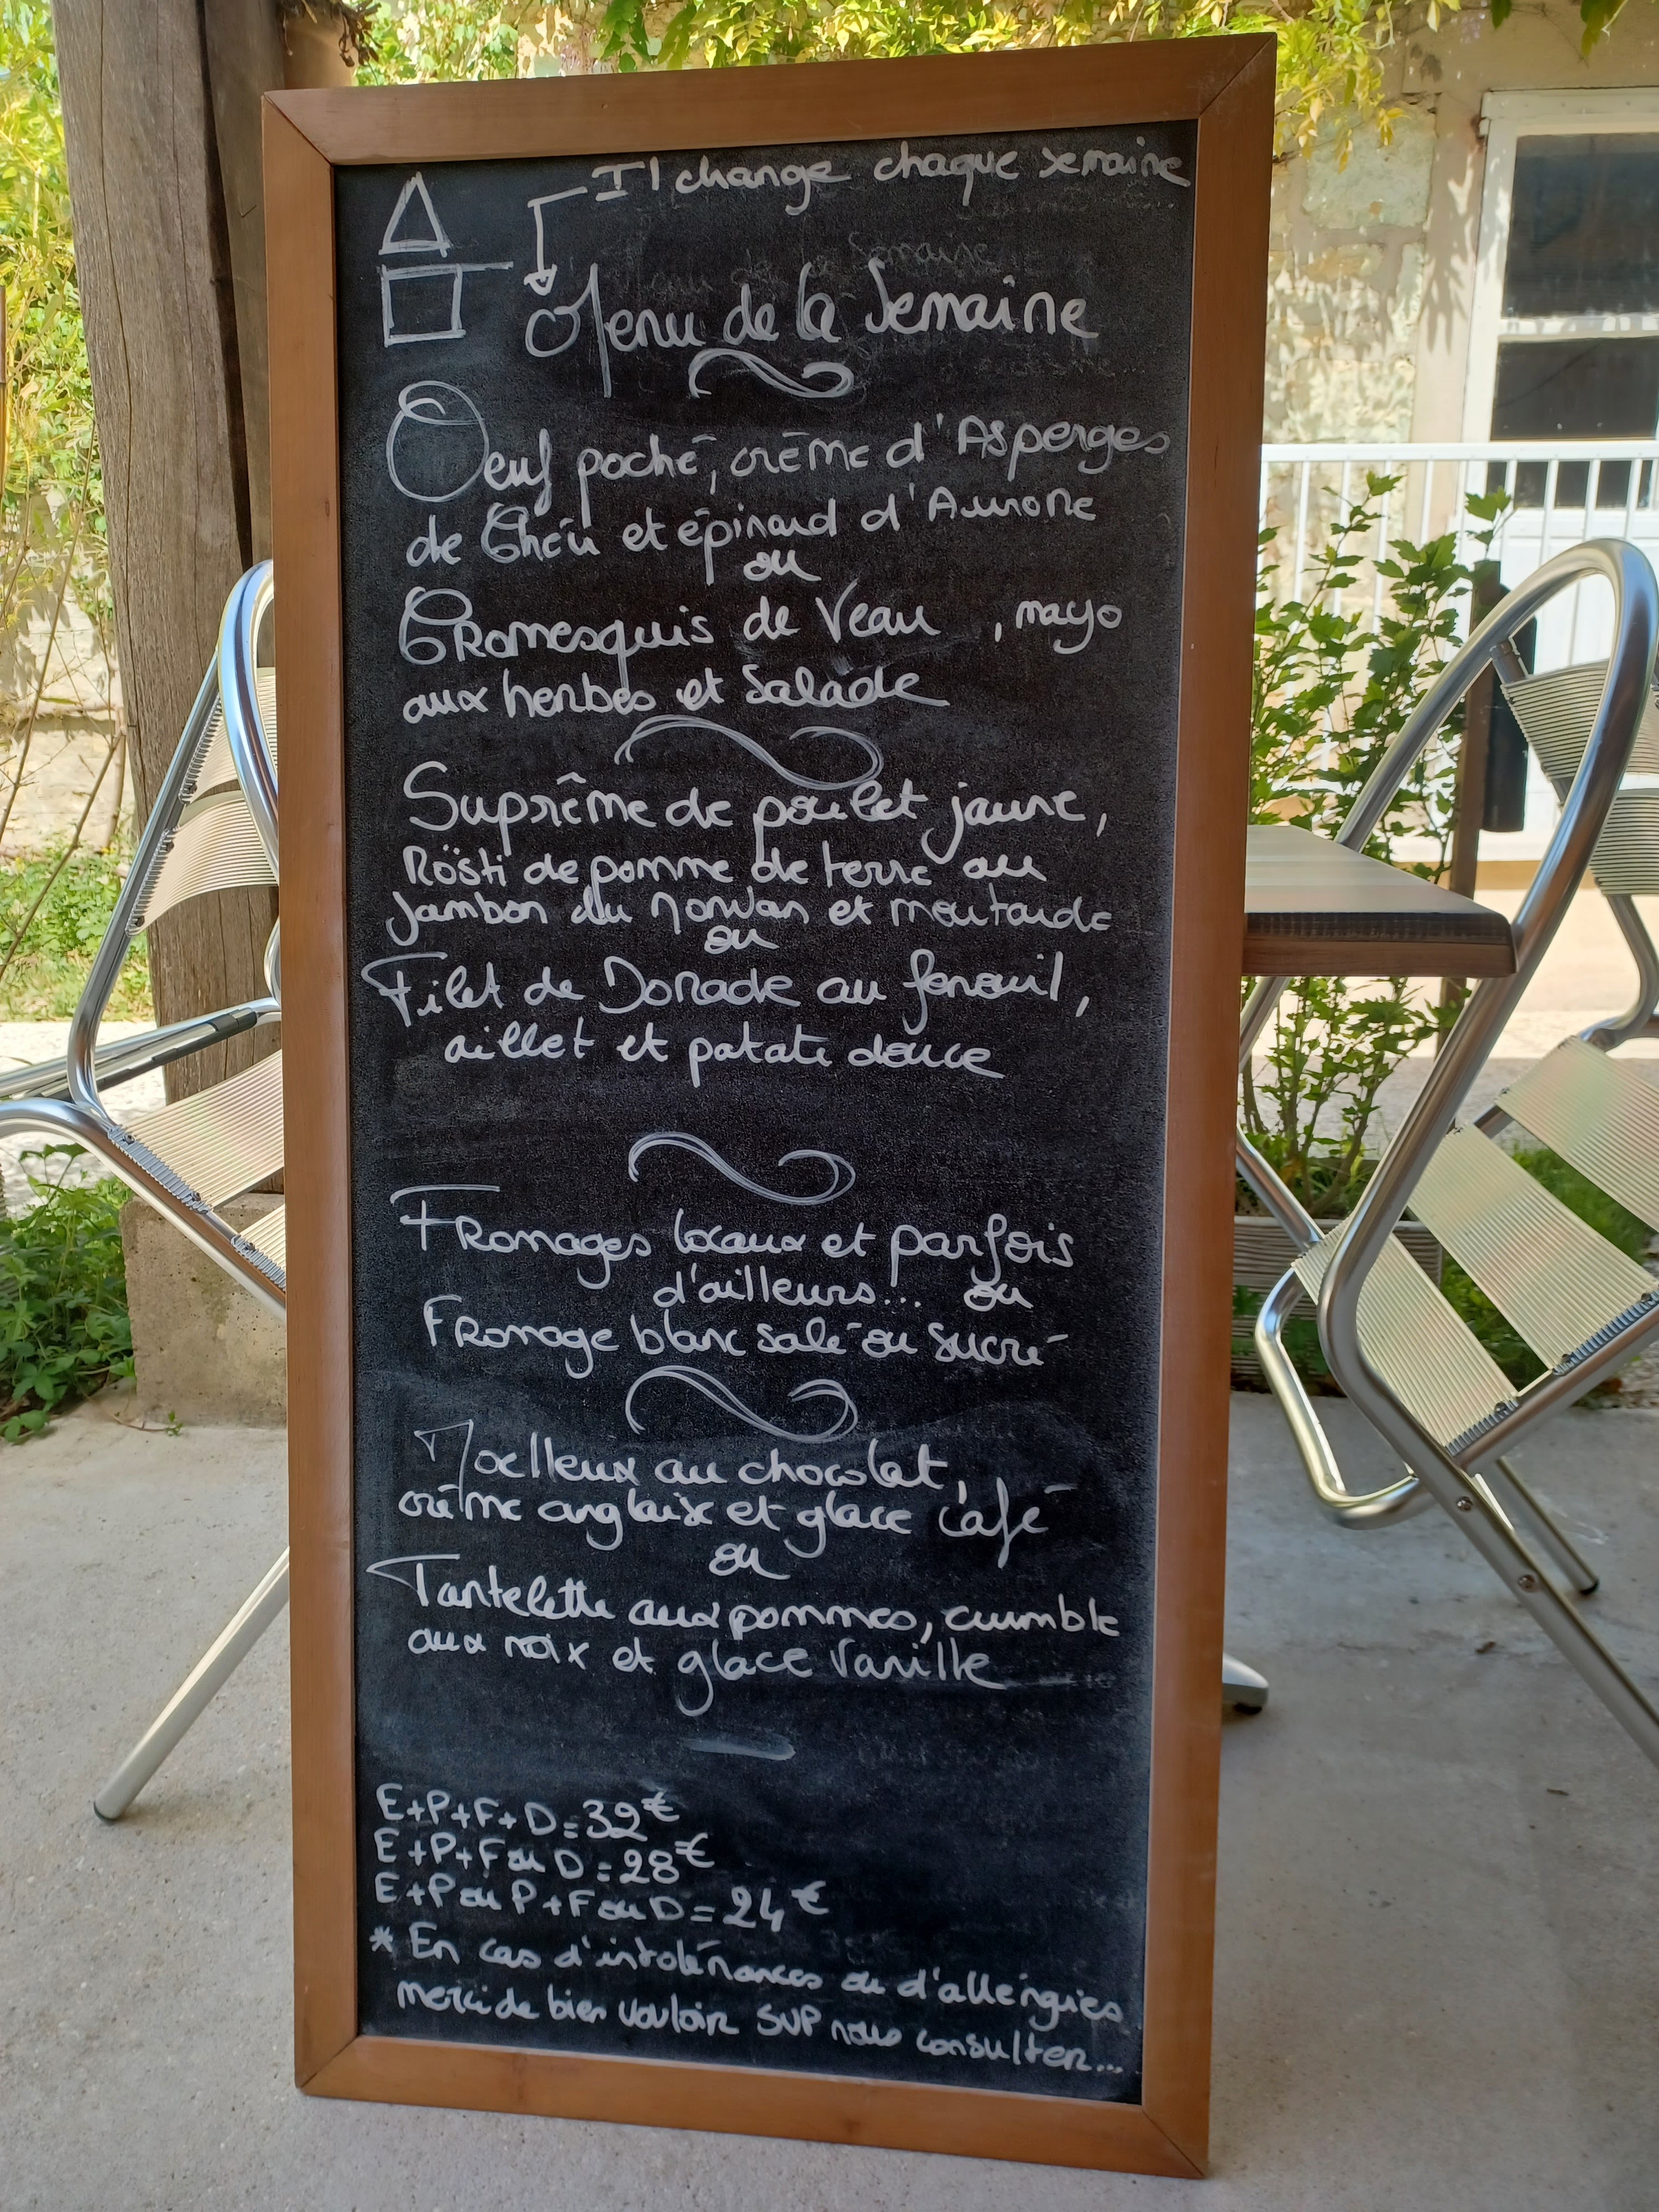 Il change chaque semaine
Menu de la Semaine
Oeuf poché, crème d'Asperges
de Ghéü et épinard d'Aurore
ou
CRomesquis de Veau , mayo
aux herbes et Salade
Suprême de poulet jaune,
Rösti de pomme de terre au
Jambon du Morvan et moutarde
ou
Filet de Dorade au fenouil,
aillet et patate douce
FRomages locaux et parfois
d'ailleurs... ou
FRomage blanc salé ou sucré
Moelleux au chocolat,
crème anglaise et glace café
ou
Tartelette aux pommes, crumble
aux noix et glace Vanille
E+P+F+D=32€
E+P+F ou D=28€
E+P ou P+F ou D=24€
* En cas d'intolérances ou d'allergies
merci de bien vouloir SVP nous consulter...